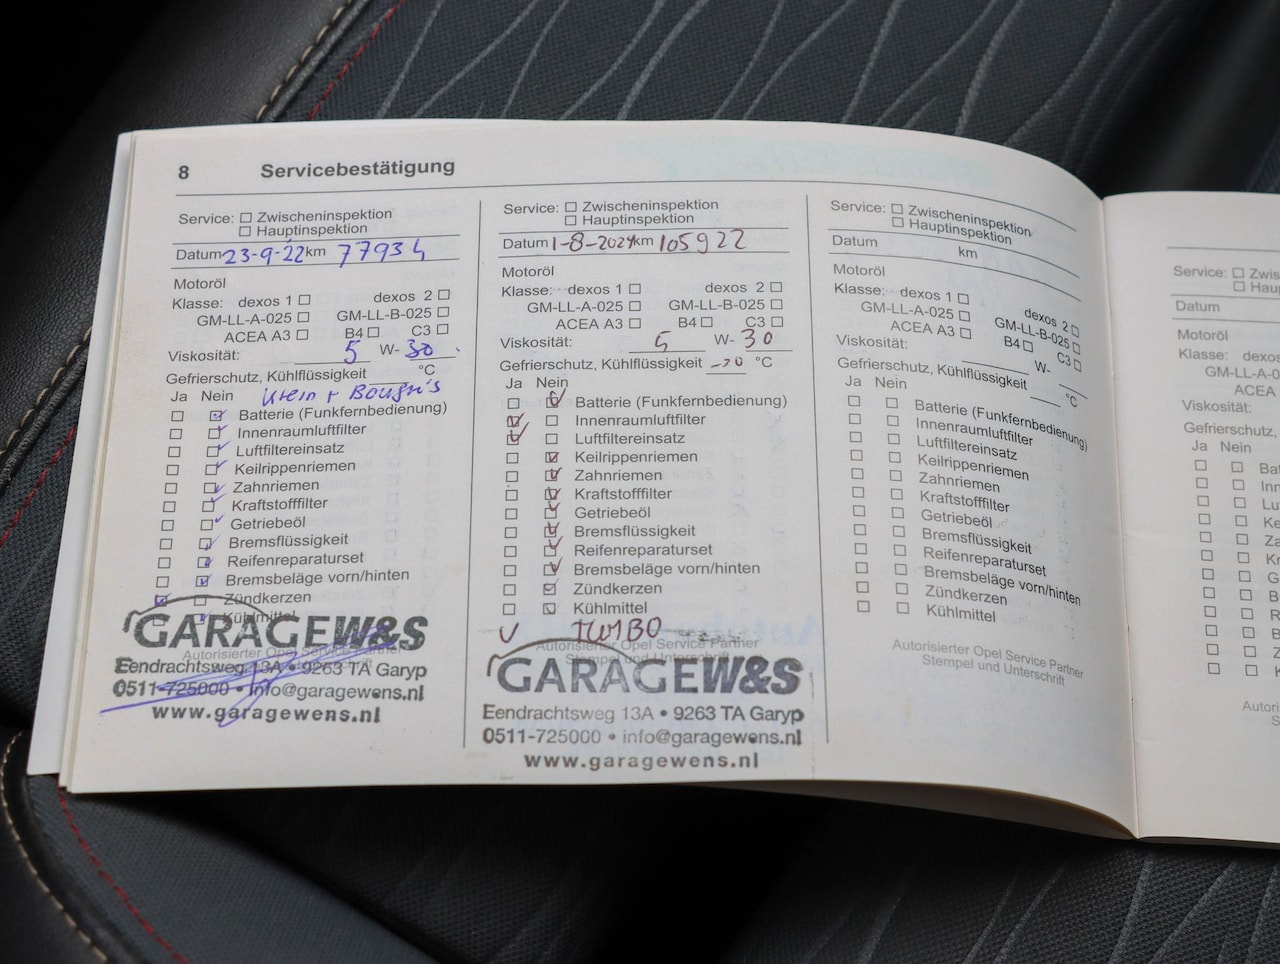 8 Servicebestätigung
Service: Zwischeninspektion
Hauptinspektion
Datum 23-9-22 km 77934
Motoröl
Klasse: dexos 1 dexos 2
GM-LL-A-025 GM-LL-B-025
ACEA A3 B4 C3
Viskosität: 5 W- 30
Gefrierschutz, Kühlflüssigkeit °C
Ja Nein Klein + Bougie's
Batterie (Funkfernbedienung)
Innenraumluftfilter
Luftfiltereinsatz
Keilrippenriemen
Zahnriemen
Kraftstofffilter
Getriebeöl
Bremsflüssigkeit
Reifenreparaturset
Bremsbeläge vorn/hinten
Zündkerzen
Kühlmittel
GARAGEW&S
Autorisierter Opel Service
Eendrachtsweg 13A • 9263 TA Garyp
0511-725000 • info@garagewens.nl
www.garagewens.nl
Service: Zwischeninspektion
Hauptinspektion
Datum 1-8-2024 km 105922
Motoröl
Klasse: dexos 1 dexos 2
GM-LL-A-025 GM-LL-B-025
ACEA A3 B4 C3
Viskosität: 5 W- 30
Gefrierschutz, Kühlflüssigkeit -20 °C
Ja Nein
Batterie (Funkfernbedienung)
Innenraumluftfilter
Luftfiltereinsatz
Keilrippenriemen
Zahnriemen
Kraftstofffilter
Getriebeöl
Bremsflüssigkeit
Reifenreparaturset
Bremsbeläge vorn/hinten
Zündkerzen
Kühlmittel
TURBO
Autorisierter Opel Service Partner
Stempel und Unterschrift
GARAGEW&S
Eendrachtsweg 13A • 9263 TA Garyp
0511-725000 • info@garagewens.nl
www.garagewens.nl
Service: Zwischeninspektion
Hauptinspektion
Datum km
Motoröl
Klasse: dexos 1 dexos 2
GM-LL-A-025 GM-LL-B-025
ACEA A3 B4 C3
Viskosität: W-
Gefrierschutz, Kühlflüssigkeit °C
Ja Nein
Batterie (Funkfernbedienung)
Innenraumluftfilter
Luftfiltereinsatz
Keilrippenriemen
Zahnriemen
Kraftstofffilter
Getriebeöl
Bremsflüssigkeit
Reifenreparaturset
Bremsbeläge vorn/hinten
Zündkerzen
Kühlmittel
Autorisierter Opel Service Partner
Stempel und Unterschrift
Service: Zwisc
Haup
Datum
Motoröl
Klasse: dexos
GM-LL-A-0
ACEA
Viskosität:
Gefrierschutz,
Ja Nein
Ba
Inn
Lu
Ke
Za
Kr
G
B
R
B
Z
K
Autori
S